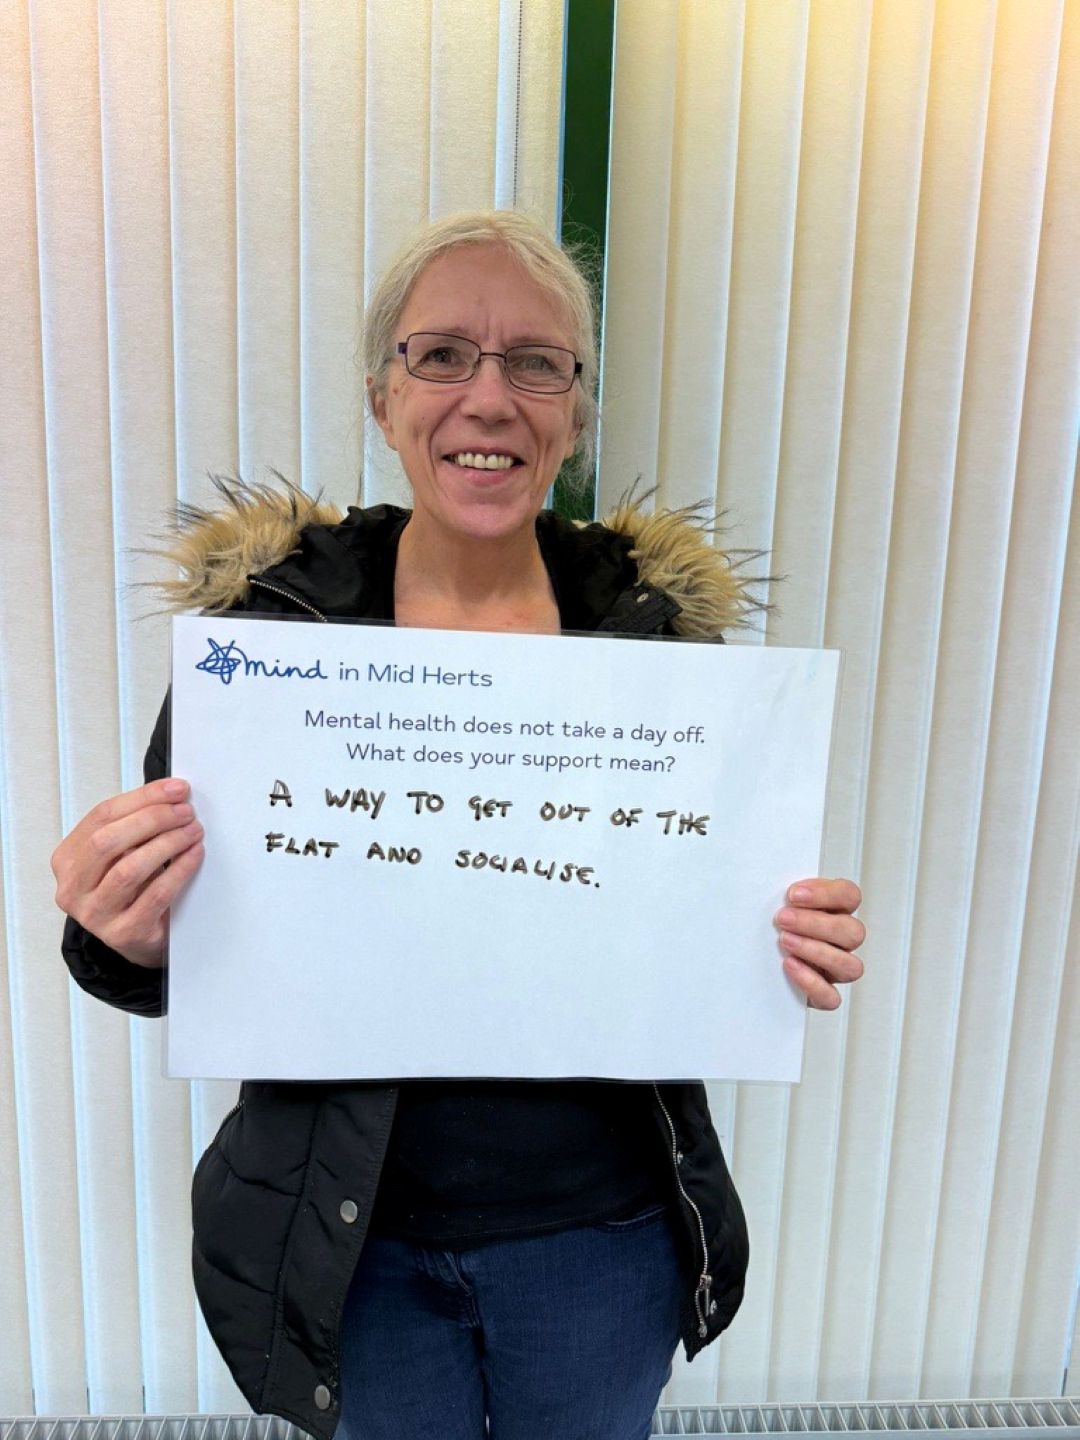 mind in Mid Herts
Mental health does not take a day off.
What does your support mean?
A WAY TO GET OUT OF THE
FLAT AND SOCIALISE.